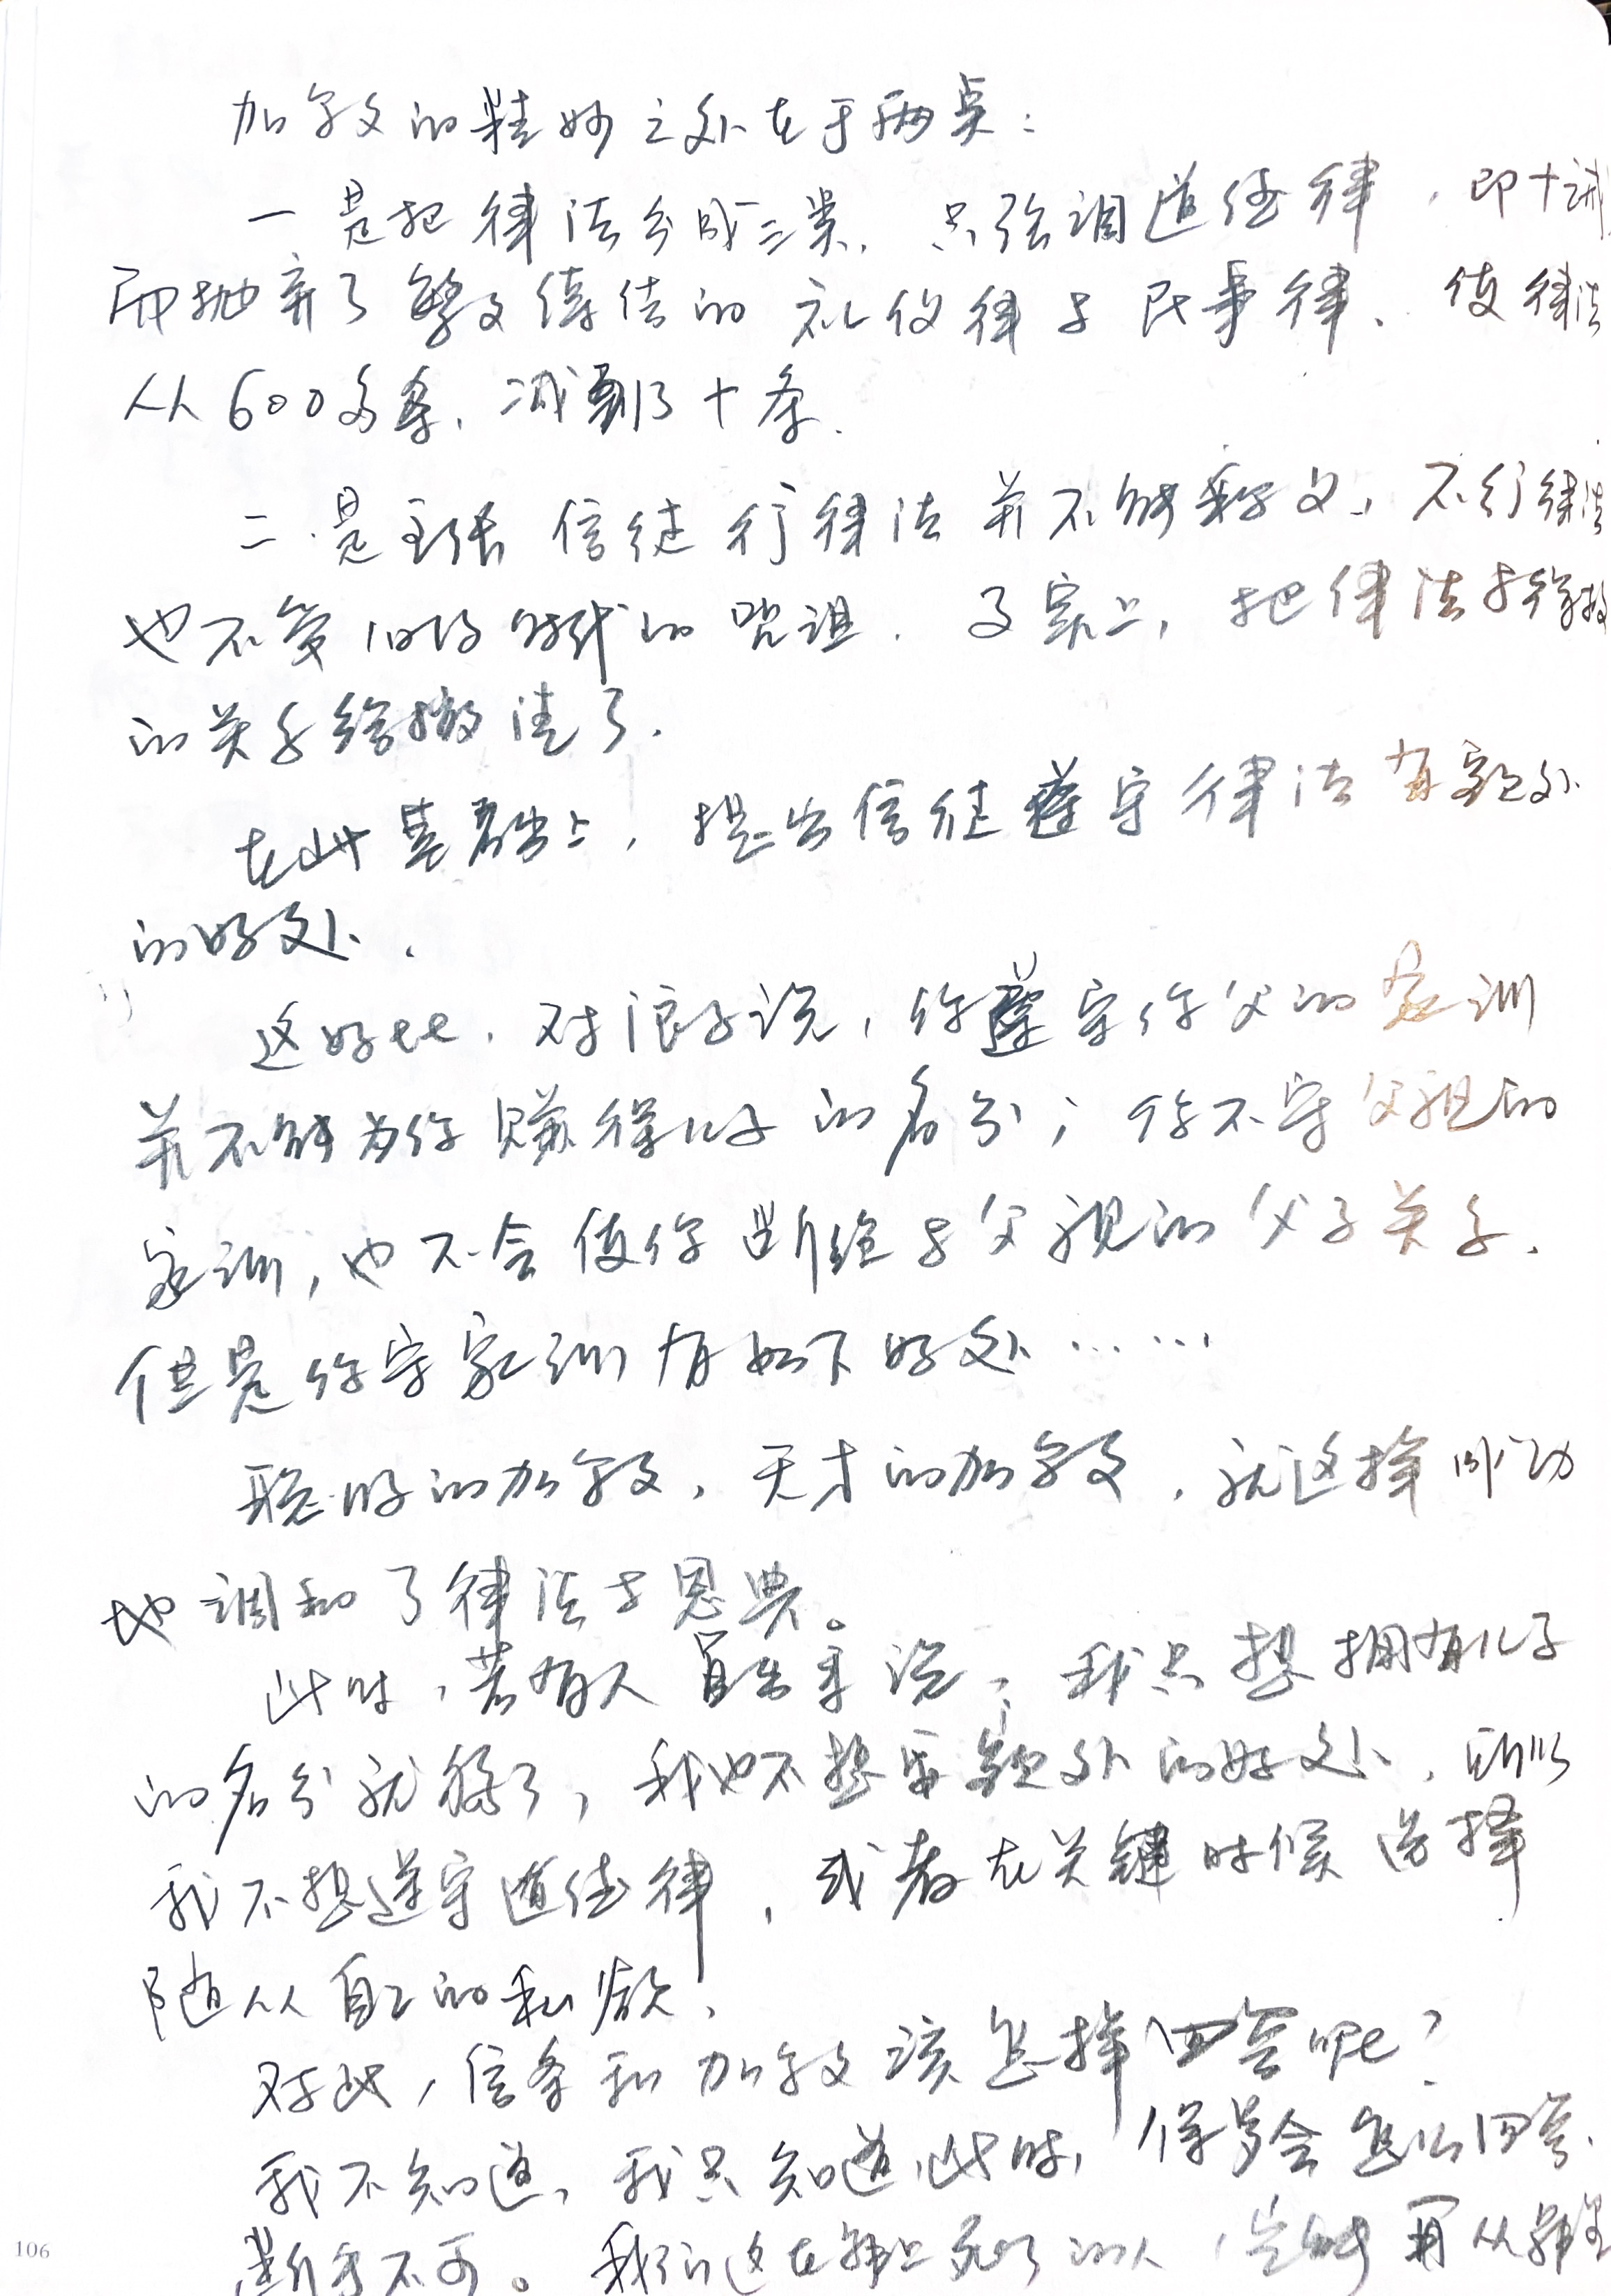 加尔文的精妙之处在于两点：
一是把律法分成三类，只强调道德律，即十诫
而抛弃了繁文缛节的礼仪律与民事律、使律法
从600多条，减到了十条.
二是主张信徒行律法并不能称义，不行律法
也不受旧约时代的咒诅. 事实上，把律法与称义
的关系给撤清了.
在此基础上，提出信徒遵守律法有额外
的好处.
这好比，对浪子说，你遵守你父的家训
并不能为你赚得儿子的名分；你不守父亲的
家训，也不会使你断绝与父亲的父子关系.
但是你守家训有如下好处……
聪明的加尔文，天才的加尔文，就这样成功
地调和了律法与恩典。
此时，若有人自出来说，我只想拥有儿子
的名分就够了，我也不想要额外的好处，所以
我不想遵守道德律，或者在关键时候选择
随从自己的私欲，
对此，信条和加尔文该怎样回答呢？
我不知道，我只知道此时，保罗会怎么回答.
断乎不可。我们这在罪上死了的人，岂能再从罪里
106